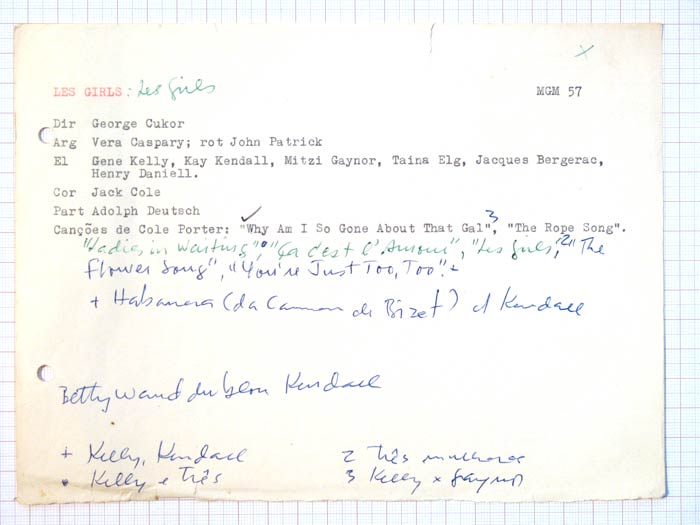 x
LES GIRLS: Les Girls MGM 57
Dir George Cukor
Arg Vera Caspary; rot John Patrick
El Gene Kelly, Kay Kendall, Mitzi Gaynor, Taina Elg, Jacques Bergerac,
Henry Daniell.
Cor Jack Cole
Part Adolph Deutsch
Canções de Cole Porter: "Why Am I So Gone About That Gal"³, "The Rope Song".
"Ladies in Waiting", "Ça c'est l'Amour", "Les Girls,"² "The
Flower Song", "You're Just Too, Too".+
+ Habanera (da Carmen de Bizet) c/ Kendall
Betty Wand dublou Kendall
+ Kelly, Kendall 2 três mulheres
• Kelly e três 3 Kelly x Gaynor